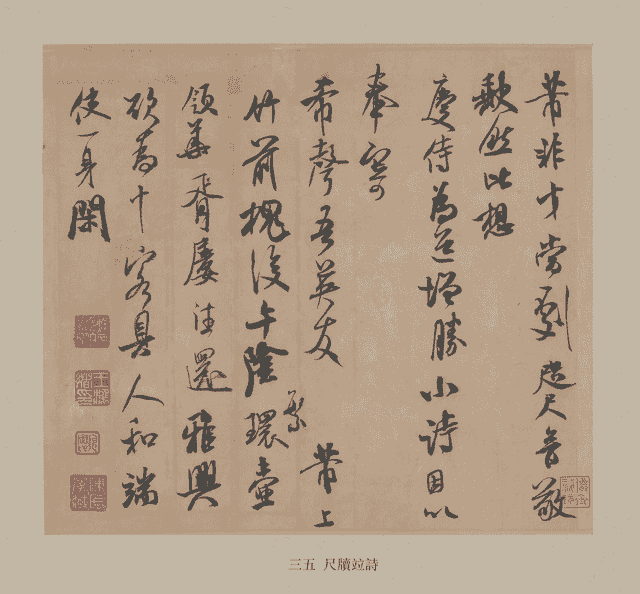 芾非才當劇咫尺音敬
缺然比想
慶侍為道增勝小詩因以
奉寄
希聲吾英友 芾上
竹前槐後午陰繁環壺
領華胥屢往還雅興
欲為十客具人和端
使一身閑
三五 尺牘竝詩